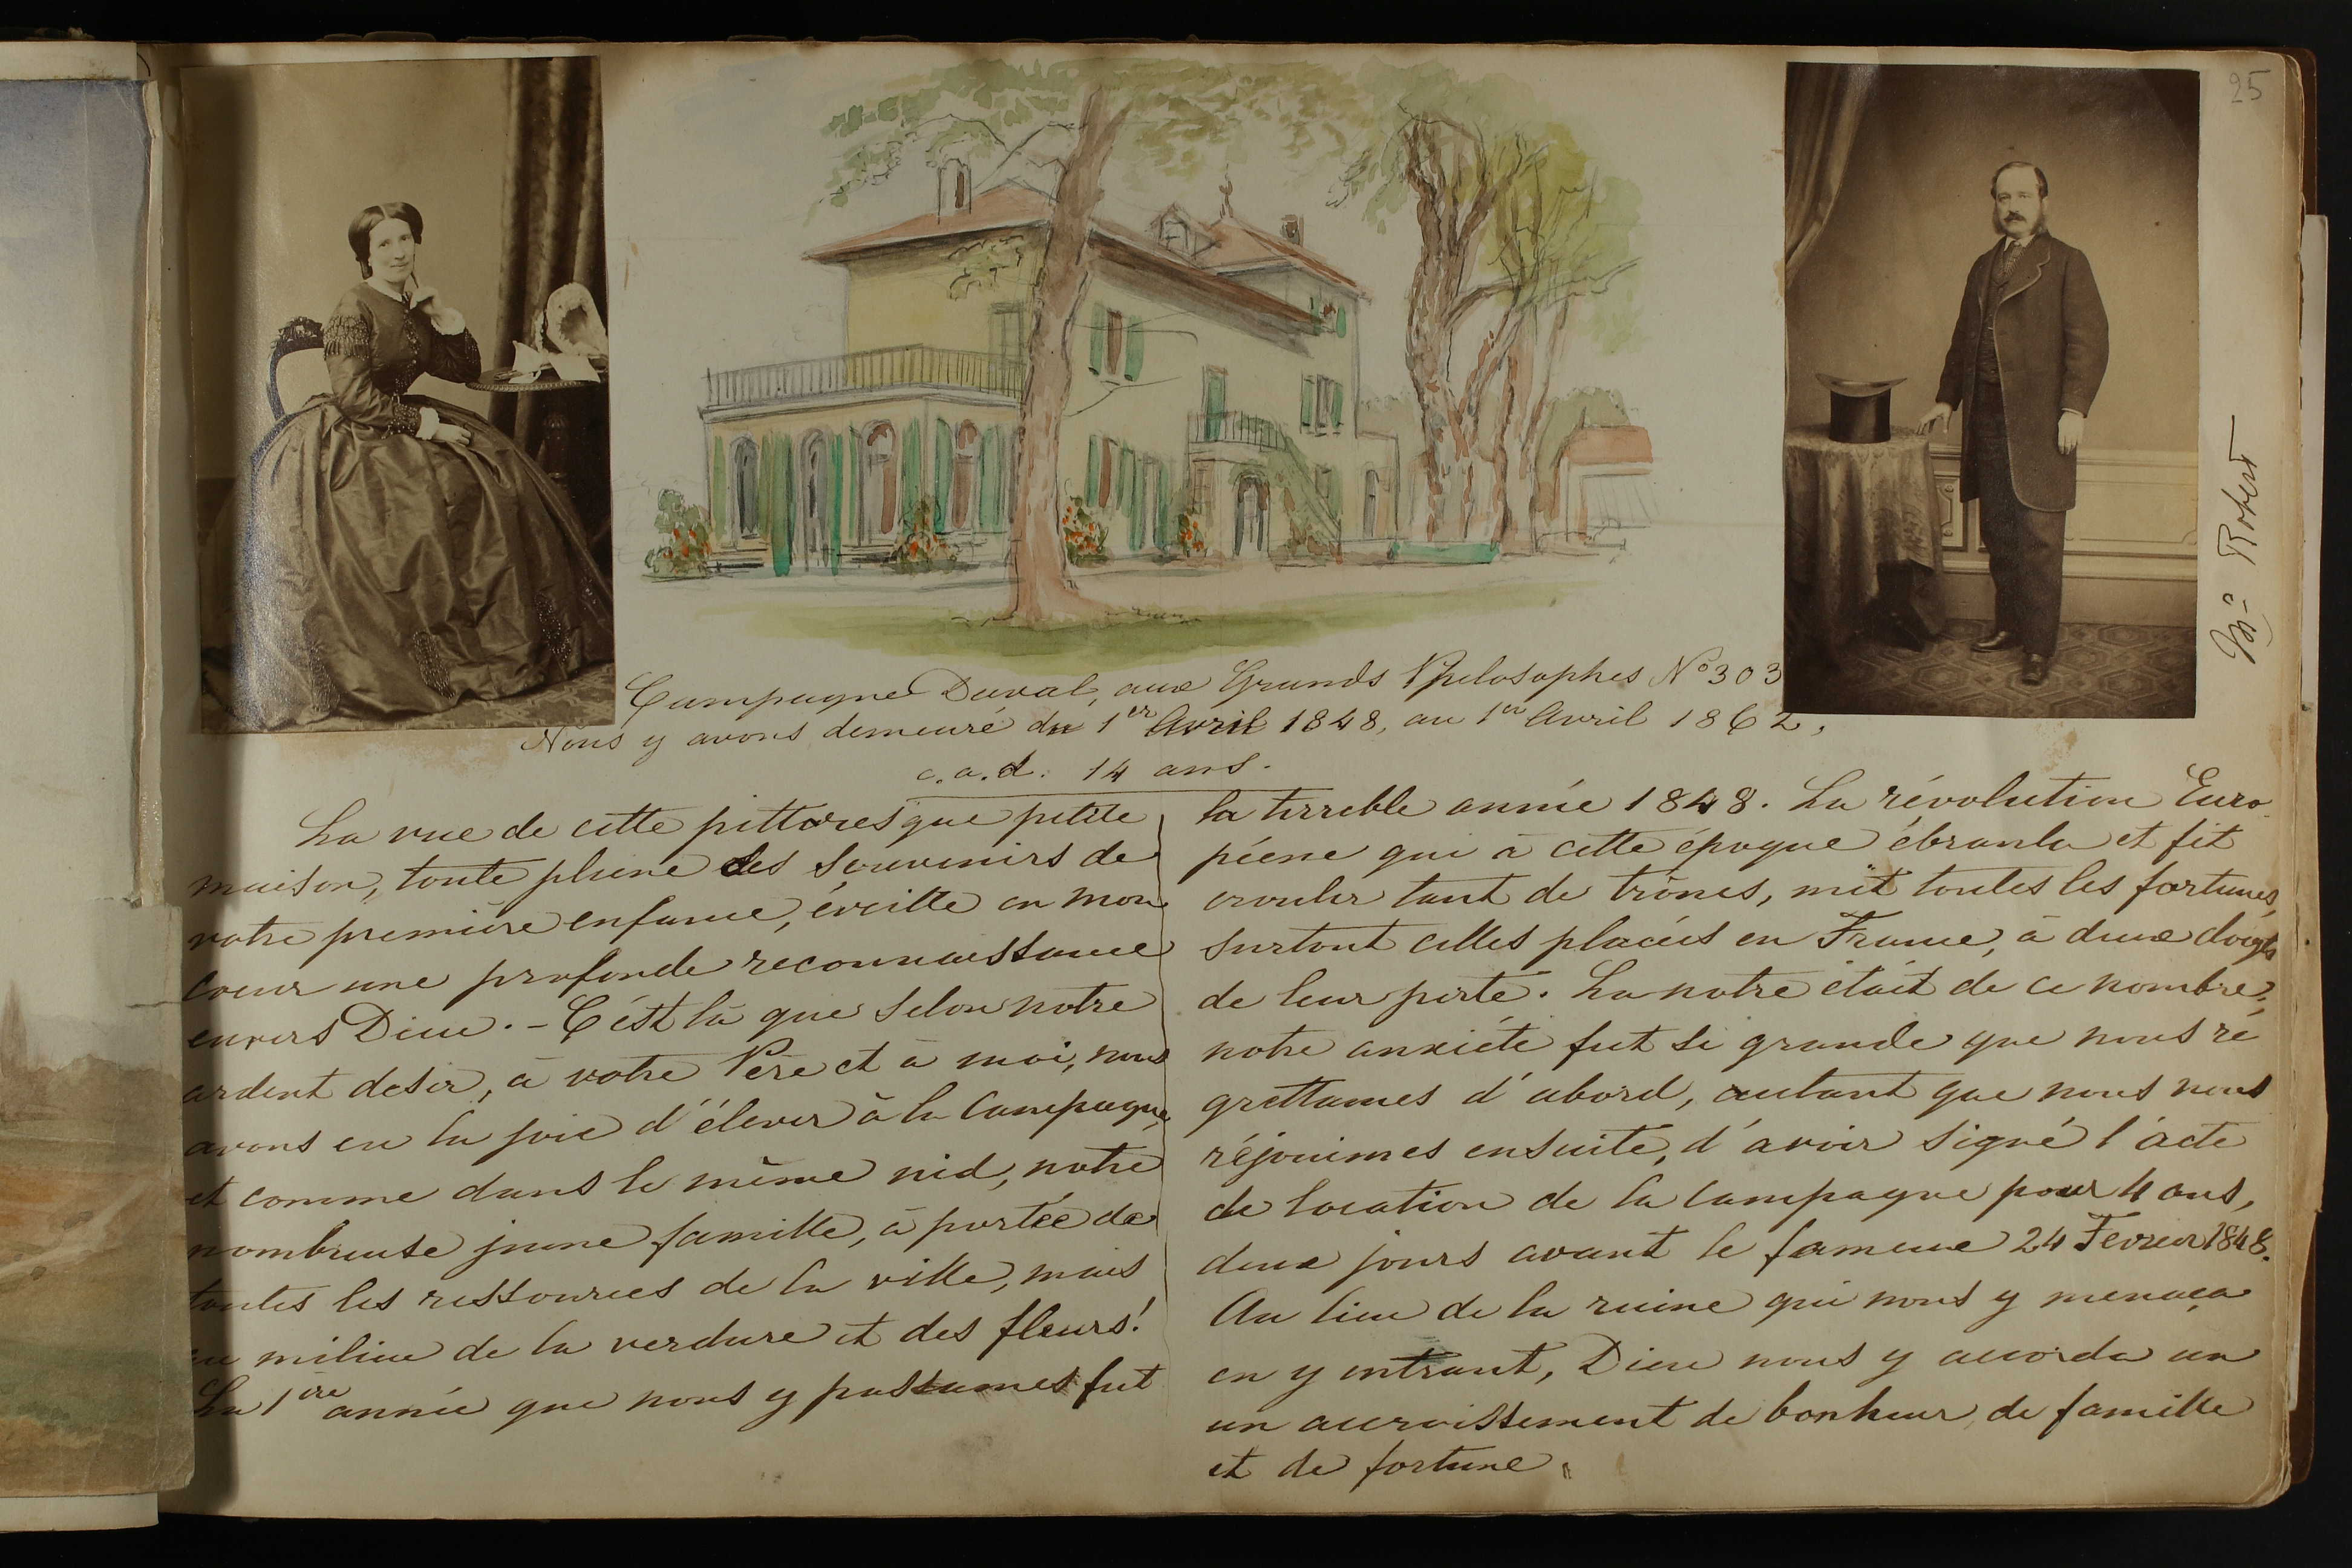 25
Mr Robert
Campagne Duval, aux Grands Philosophes No 303
Nous y avons demeuré du 1er Avril 1848, au 1er Avril 1862,
c.a.d. 14 ans.
La vue de cette pittoresque petite
maison, toute pleine des souvenirs de
votre première enfance, éveille en mon
coeur une profonde reconnaissance
envers Dieu. - C'est là que selon notre
ardent desir, à votre Père et à moi, nous
avons eu la joie d'élever à la Campagne,
et comme dans le même nid, notre
nombreuse jeune famille, à portée de
toutes les ressources de la ville, mais
au milieu de la verdure et des fleurs!
La 1ère année que nous y passames fut
la terrible année 1848. La révolution Euro-
péene qui à cette époque ébranla et fit
crouler tant de trônes, mit toutes les fortunes,
surtout celles placées en France, à deux doigts
de leur perte. La notre était de ce nombre;
notre anxiété fut si grande que nous ré
grettames d'abord, autant que nous nous
réjouimes ensuite, d'avoir signé l'acte
de location de la Campagne pour 4 ans,
deux jours avant le fameux 24 Fevrier 1848.
Au lieu de la ruine qui nous y menaça
en y entrant, Dieu nous y accorda un
un accroissement de bonheur, de famille
et de fortune.